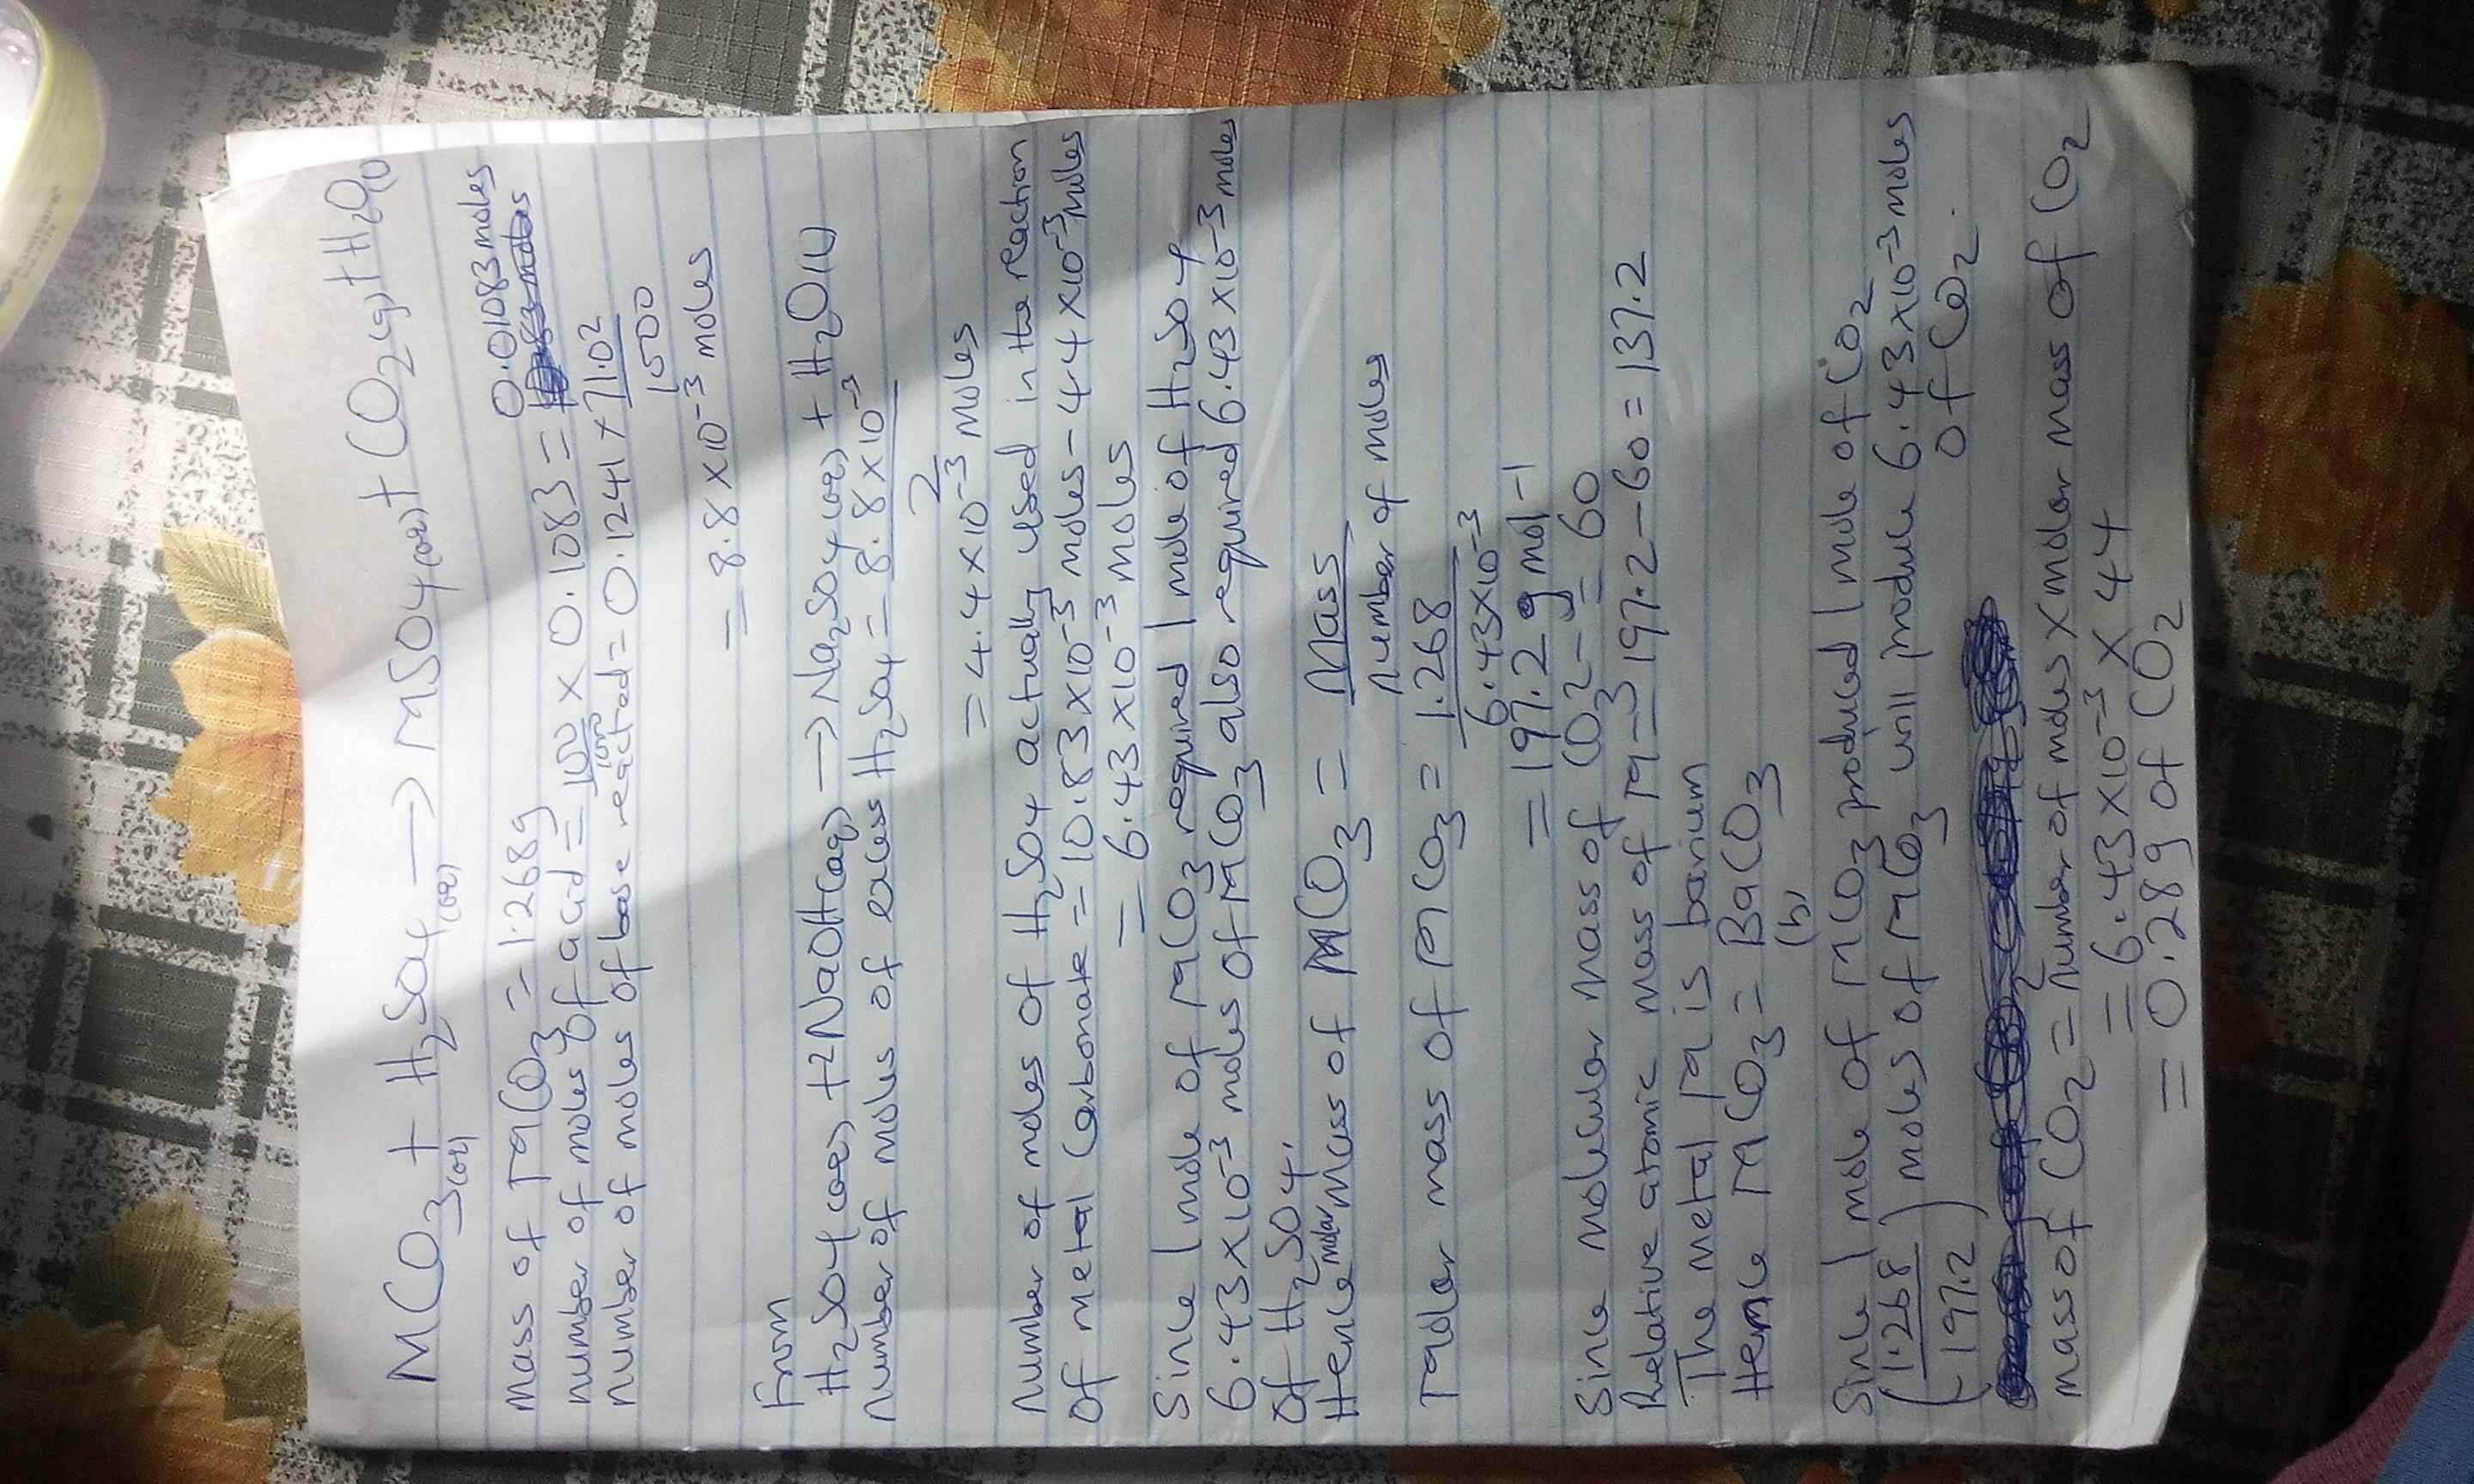 MCO3(aq) + H2SO4(aq) → MSO4(aq) + CO2(g) + H2O(l)
Mass of MCO3 = 1.268g
number of moles of acid = 100/1000 × 0.1083 = 0.01083 moles
number of moles of base reacted = 0.1241 × 71.02/1000
= 8.8 × 10⁻³ moles
From
H2SO4(aq) + 2NaOH(aq) → Na2SO4(aq) + H2O(l)
number of moles of excess H2SO4 = 8.8 × 10⁻³/2
= 4.4 × 10⁻³ moles
Number of moles of H2SO4 actually used in the reaction
of metal carbonate = 10.83 × 10⁻³ moles - 4.4 × 10⁻³ moles
= 6.43 × 10⁻³ moles
Since 1 mole of MCO3 required 1 mole of H2SO4
6.43 × 10⁻³ moles of MCO3 also required 6.43 × 10⁻³ moles
of H2SO4.
Hence molar mass of MCO3 = Mass/number of moles
Molar mass of MCO3 = 1.268/6.43×10⁻³
= 197.2 g mol-1
Since molecular mass of CO3²⁻ = 60
Relative atomic mass of M = 197.2 - 60 = 137.2
The metal M is barium
Hence MCO3 = BaCO3
(b)
Since 1 mole of MCO3 produced 1 mole of CO2
(1.268/197.2) moles of MCO3 will produce 6.43 × 10⁻³ moles
of CO2.
mass of CO2 = number of moles × molar mass of CO2
= 6.43 × 10⁻³ × 44
= 0.28g of CO2